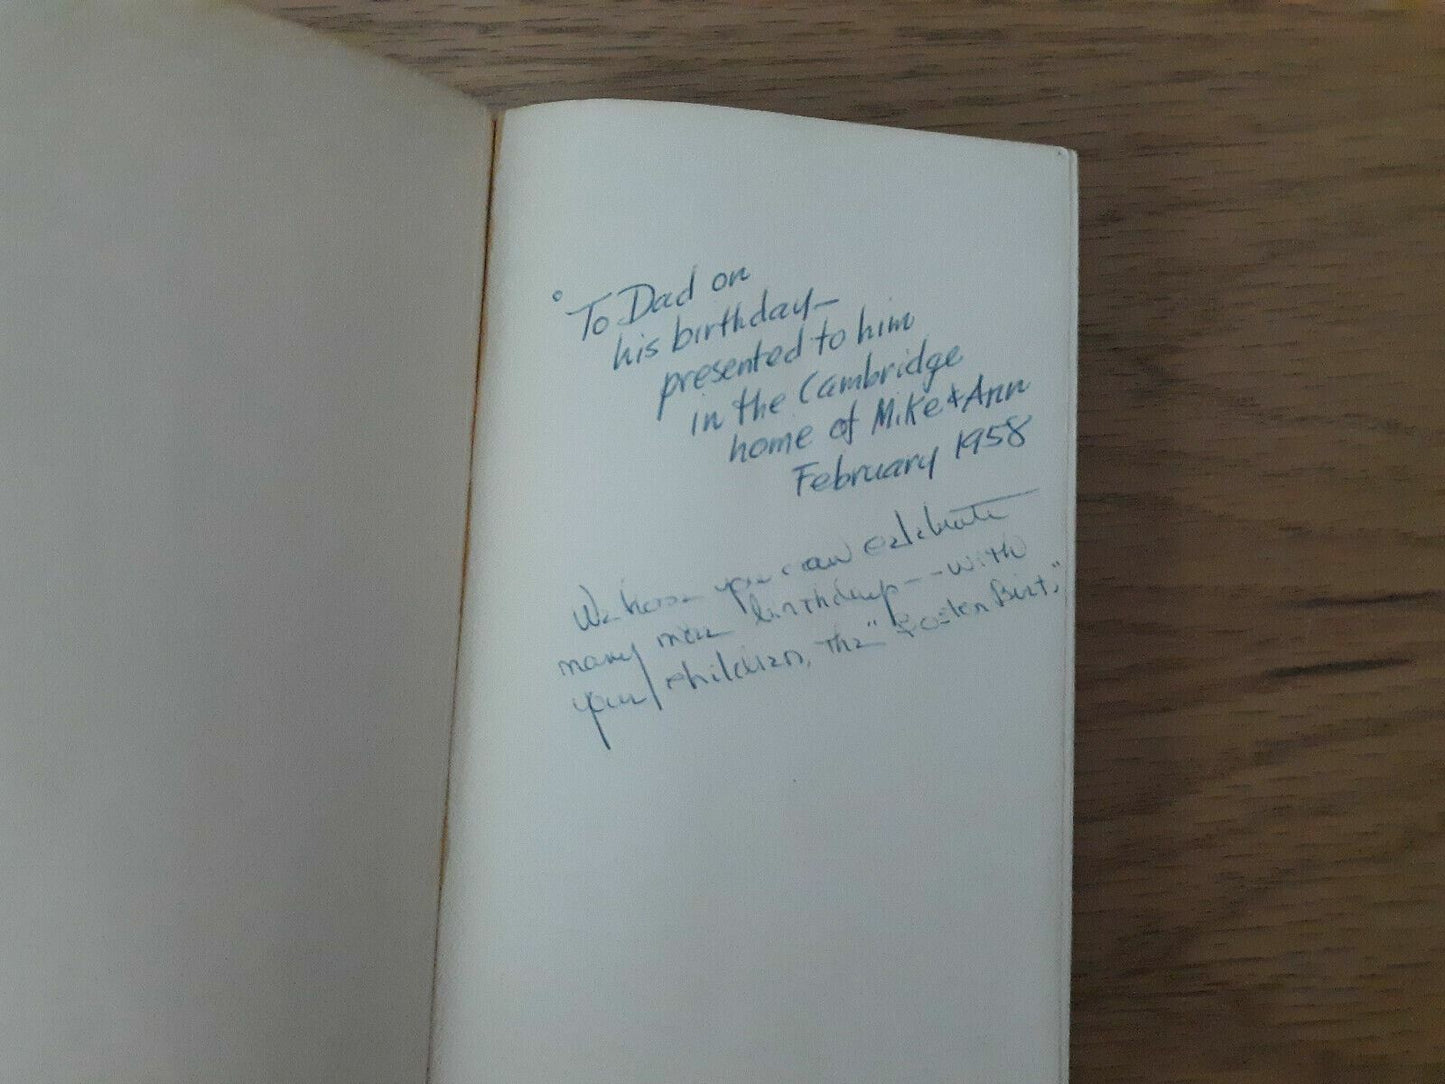 To Dad on
his birthday—
presented to him
in the Cambridge
home of Mike & Ann
February 1958
We hope you can celebrate
many more birthdays -- with
your children, the "Boston